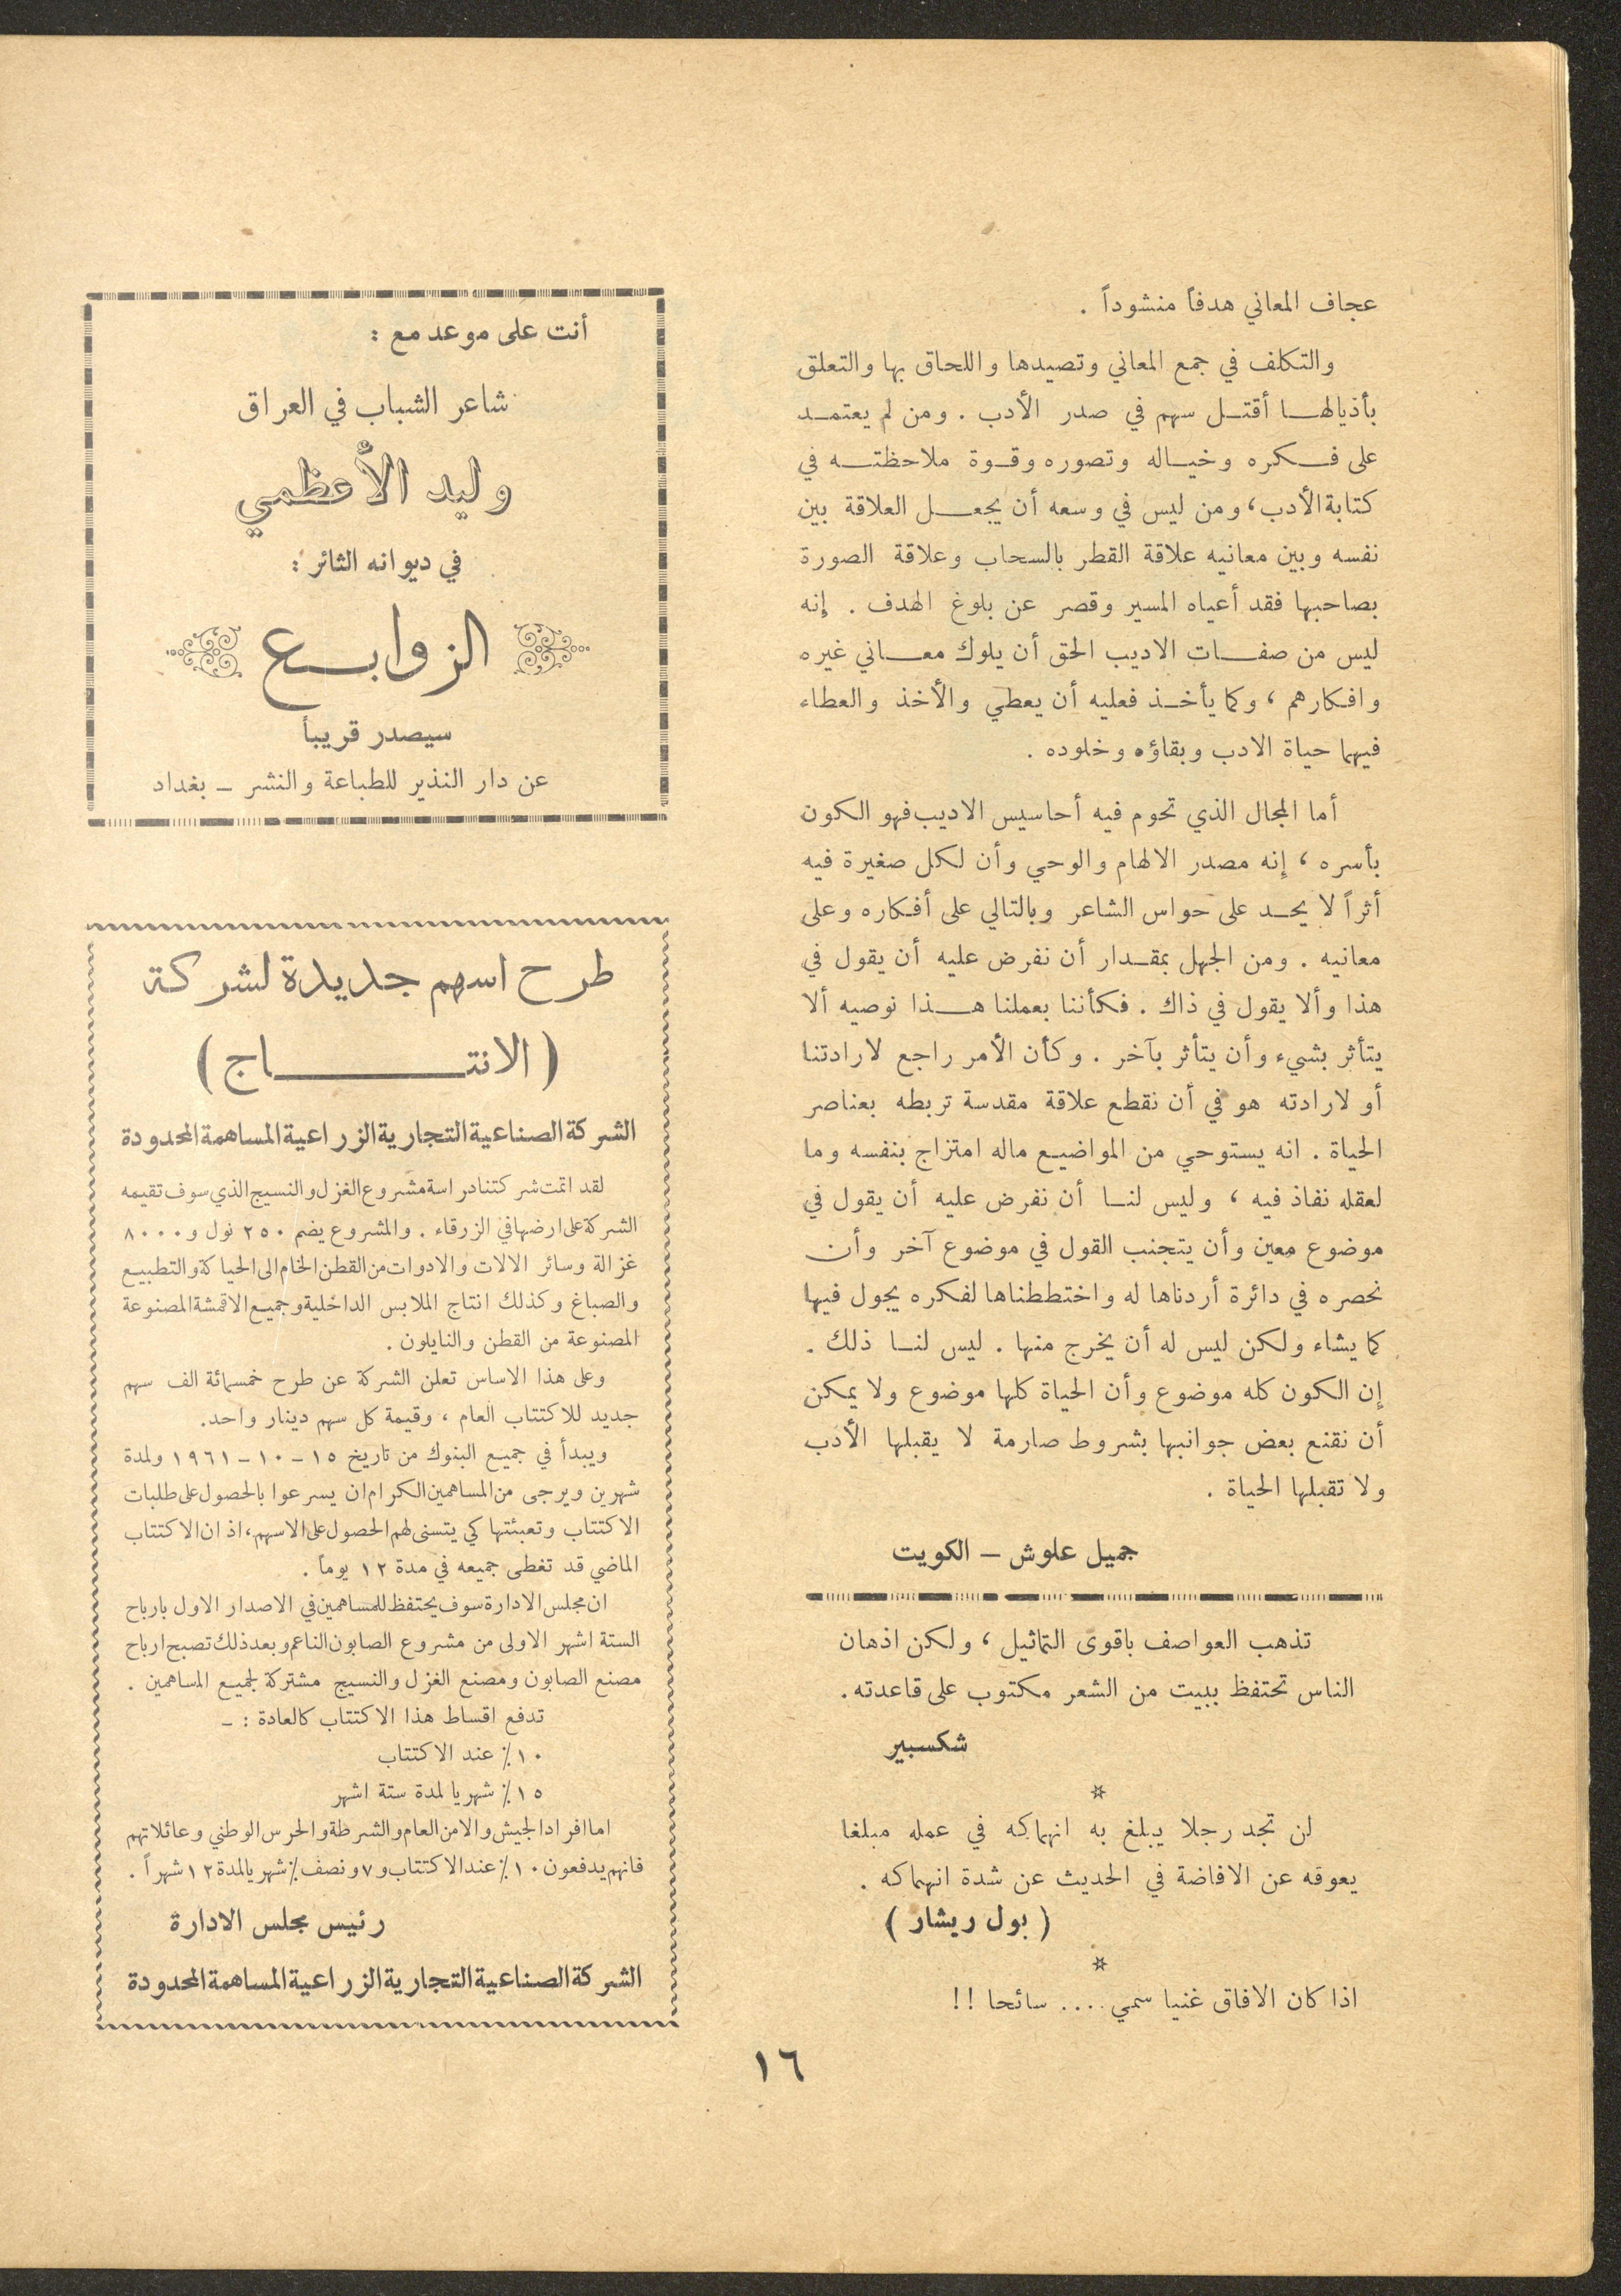 عجاف المعاني هدفاً منشوداً .
والتكلف في جمع المعاني وتصيدها واللحاق بها والتعلق
بأذيالها أقتل سهم في صدر الأدب . ومن لم يعتمد
على فكره وخياله وتصوره وقوة ملاحظته في
كتابة الأدب، ومن ليس في وسعه أن يجعل العلاقة بين
نفسه وبين معانيه علاقة القطر بالسحاب وعلاقة الصورة
بصاحبها فقد أعياه المسير وقصر عن بلوغ الهدف . إنه
ليس من صفات الاديب الحق أن يلوك معاني غيره
وافكارهم ، وكما يأخذ فعليه أن يعطي والأخذ والعطاء
فيهما حياة الادب وبقاؤه وخلوده .
أما المجال الذي تحوم فيه أحاسيس الاديب فهو الكون
بأسره ، إنه مصدر الالهام والوحي وأن لكل صغيرة فيه
أثراً لا يحد على حواس الشاعر وبالتالي على أفكاره وعلى
معانيه . ومن الجهل بمقدار أن نفرض عليه أن يقول في
هذا وألا يقول في ذاك . فكأننا بعملنا هذا نوصيه ألا
يتأثر بشيء وأن يتأثر بآخر . وكأن الأمر راجع لارادتنا
أو لارادته هو في أن نقطع علاقة مقدسة تربطه بعناصر
الحياة . انه يستوحي من المواضيع ماله امتزاج بنفسه وما
لعقله نفاذ فيه ، وليس لنا أن نفرض عليه أن يقول في
موضوع معين وأن يتجنب القول في موضوع آخر وأن
نحصره في دائرة أردناها له واختططناها لفكره يجول فيها
كما يشاء ولكن ليس له أن يخرج منها . ليس لنا ذلك .
إن الكون كله موضوع وأن الحياة كلها موضوع ولا يمكن
أن نقنع بعض جوانبها بشروط صارمة لا يقبلها الأدب
ولا تقبلها الحياة .
جميل علوش – الكويت
تذهب العواصف باقوى التماثيل ، ولكن اذهان
الناس تحتفظ ببيت من الشعر مكتوب على قاعدته .
شكسبير
*
لن تجد رجلا يبلغ به انهماكه في عمله مبلغا
يعوقه عن الافاضة في الحديث عن شدة انهماكه .
( بول ريشار )
*
اذا كان الافاق غنيا سمي .... سائحا !!
أنت على موعد مع :
شاعر الشباب في العراق
وليد الأعظمي
في ديوانه الثائر :
الزوابع
سيصدر قريباً
عن دار النذير للطباعة والنشر – بغداد
طرح اسهم جديدة لشركة
( الانتاج )
الشركة الصناعية التجارية الزراعية المساهمة المحدودة
لقد اتمت شركتنا دراسة مشروع الغزل والنسيج الذي سوف تقيمه
الشركة على ارضها في الزرقاء . والمشروع يضم ٢٥٠ نول و ٨٠٠٠
غزالة وسائر الالات والادوات من القطن الخام الى الحياكة والتطبيع
والصباغ وكذلك انتاج الملابس الداخلية وجميع الاقمشة المصنوعة
المصنوعة من القطن والنايلون .
وعلى هذا الاساس تعلن الشركة عن طرح خمسمائة الف سهم
جديد للاكتتاب العام ، وقيمة كل سهم دينار واحد.
ويبدأ في جميع البنوك من تاريخ ١٥ – ١٠ – ١٩٦١ ولمدة
شهرين ويرجى من المساهمين الكرام ان يسرعوا بالحصول على طلبات
الاكتتاب وتعبئتها كي يتسنى لهم الحصول على الاسهم، اذ ان الاكتتاب
الماضي قد تغطى جميعه في مدة ١٢ يوماً .
ان مجلس الادارة سوف يحتفظ للمساهمين في الاصدار الاول بارباح
الستة اشهر الاولى من مشروع الصابون الناعم وبعد ذلك تصبح ارباح
مصنع الصابون ومصنع الغزل والنسيج مشتركة لجميع المساهمين .
تدفع اقساط هذا الاكتتاب كالعادة : –
١٠٪ عند الاكتتاب
١٥٪ شهريا لمدة ستة اشهر
اما افراد الجيش والامن العام والشرطة والحرس الوطني وعائلاتهم
فانهم يدفعون ١٠٪ عند الاكتتاب و ٧ ونصف ٪ شهريا لمدة ١٢ شهراً .
رئيس مجلس الادارة
الشركة الصناعية التجارية الزراعية المساهمة المحدودة
١٦